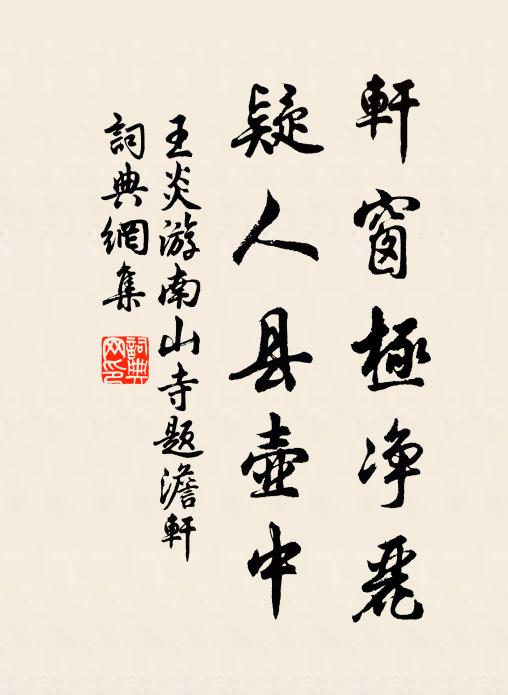 軒窗極净麗
疑人县壺中
王炎游南山寺題澹軒
詞典網集
詞典網印